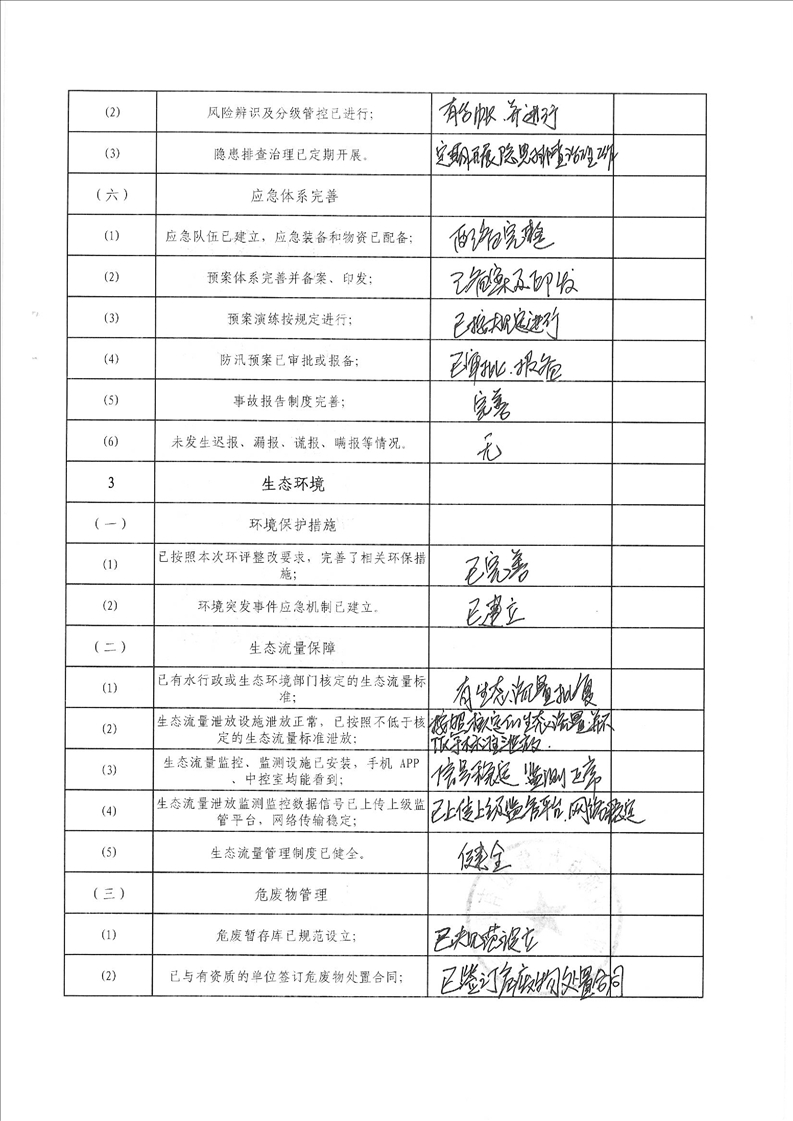 (2) 风险辨识及分级管控已进行; 有台账、并进行
(3) 隐患排查治理已定期开展。 定期开展隐患排查治理工作
(六) 应急体系完善
(1) 应急队伍已建立,应急装备和物资已配备;
(2) 预案体系完善并备案、印发; 已备案及印发
(3) 预案演练按规定进行; 已按规定进行
(4) 防汛预案已审批或报备; 已审批、报备
(5) 事故报告制度完善; 完善
(6) 未发生迟报、漏报、谎报、瞒报等情况。 无
3 生态环境
(一) 环境保护措施
(1) 已按照本次环评整改要求,完善了相关环保措
施; 已完善
(2) 环境突发事件应急机制已建立。 已建立
(二) 生态流量保障
(1) 已有水行政或生态环境部门核定的生态流量标
准; 有生态流量批复
(2) 生态流量泄放设施泄放正常,已按照不低于核 按照核定的生态流量并不
定的生态流量标准泄放; 低于标准泄放.
(3) 生态流量监控、监测设施已安装,手机 APP
、中控室均能看到; 信号稳定 监测正常
(4) 生态流量泄放监测监控数据信号已上传上级监
管平台,网络传输稳定; 已上传上级监管平台.网络稳定
(5) 生态流量管理制度已健全。 健全
(三) 危废物管理
(1) 危废暂存库已规范设立; 已规范设立
(2) 已与有资质的单位签订危废物处置合同; 已签订危废物处置合同